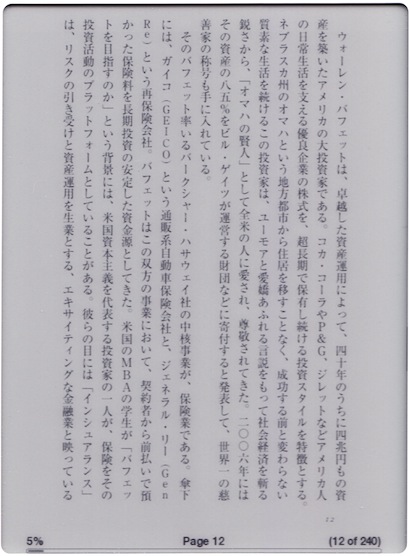 ウォーレン・バフェットは、卓越した資産運用によって、四十年のうちに四兆円もの資
産を築いたアメリカの大投資家である。コカ・コーラやP&G、ジレットなどアメリカ人
の日常生活を支える優良企業の株式を、超長期で保有し続ける投資スタイルを特徴とする。
ネブラスカ州のオマハという地方都市から住居を移すことなく、成功する前と変わらない
質素な生活を続けるこの投資家は、ユーモアと愛嬌あふれる言説をもって社会経済を斬る
鋭さから、「オマハの賢人」として全米の人に愛され、尊敬されてきた。二〇〇六年には
その資産の八五％をビル・ゲイツが運営する財団などに寄付すると発表して、世界一の慈
善家の称号も手に入れている。
そのバフェット率いるバークシャー・ハサウェイ社の中核事業が、保険業である。傘下
には、ガイコ（GEICO）という通販系自動車保険会社と、ジェネラル・リー（Gen
Re）という再保険会社。バフェットはこの双方の事業において、契約者から前払いで預
かった保険料を長期投資の安定した資金源としてきた。米国のMBAの学生が「バフェッ
トを目指すのか」という背景には、米国資本主義を代表する投資家の一人が、保険をその
投資活動のプラットフォームとしていることがある。彼らの目には「インシュアランス」
は、リスクの引き受けと資産運用を生業とする、エキサイティングな金融業と映っている
12
5%
Page 12
(12 of 240)